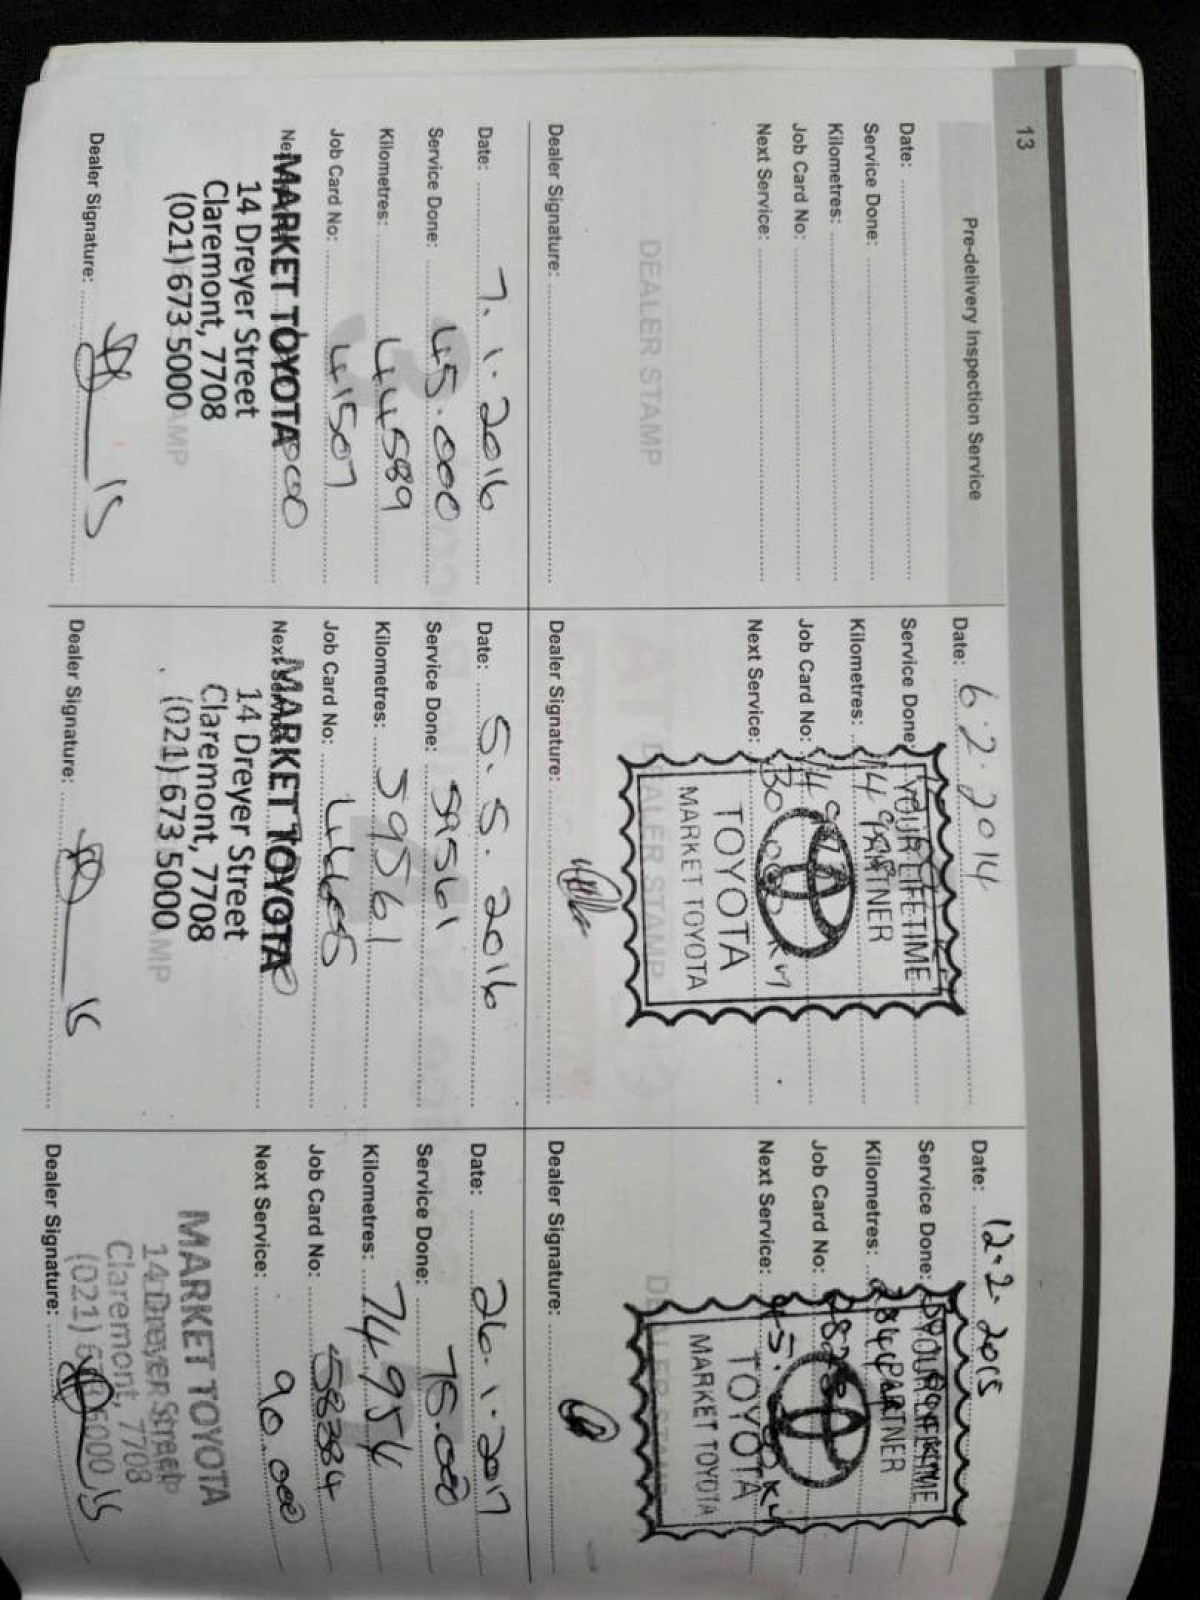 13
Pre-delivery Inspection Service
Date:
Service Done:
Kilometres:
Job Card No:
Next Service:
DEALER STAMP
Dealer Signature:
Date: 6.2.2014
Service Done:
Kilometres:
Job Card No:
Next Service:
YOUR LIFETIME
PARTNER
TOYOTA
MARKET TOYOTA
DEALER STAMP
Dealer Signature:
Date: 12.2.2015
Service Done:
Kilometres:
Job Card No:
Next Service:
YOUR LIFETIME
PARTNER
TOYOTA
MARKET TOYOTA
DEALER STAMP
Dealer Signature:
Date: 7.1.2016
Service Done: 45.000
Kilometres: 44589
Job Card No: 41507
MARKET TOYOTA
14 Dreyer Street
Claremont, 7708
(021) 673 5000
Dealer Signature: 15
Date: 5.5.2016
Service Done: 59561
Kilometres: 59561
Job Card No:
Next Service:
MARKET TOYOTA
14 Dreyer Street
Claremont, 7708
(021) 673 5000
Dealer Signature: 15
Date: 26.1.2017
Service Done: 75.000
Kilometres: 74954
Job Card No: 58384
Next Service: 90.000
MARKET TOYOTA
14 Dreyer Street
Claremont, 7708
(021) 673 5000
Dealer Signature: 15